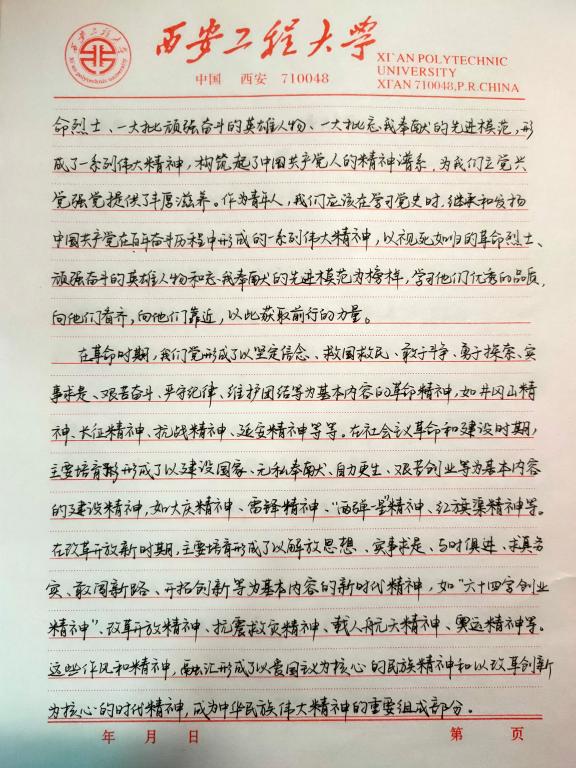 西安工程大学
XI'AN POLYTECHNIC
UNIVERSITY
中国 西安 710048
XI'AN 710048,P.R.CHINA
命烈士、一大批顽强奋斗的英雄人物、一大批忘我奉献的先进模范,形
成了一系列伟大精神,构筑起了中国共产党人的精神谱系,为我们立党兴
党强党提供了丰厚滋养。作为青年人,我们应该在学习党史时,继承和发扬
中国共产党在百年奋斗历程中形成的一系列伟大精神,以视死如归的革命烈士、
顽强奋斗的英雄人物和忘我奉献的先进模范为榜样,学习他们优秀的品质,
向他们看齐,向他们靠近,以此获取前行的力量。
在革命时期,我们党形成了以坚定信念、救国救民、敢于斗争、勇于探索、实
事求是、艰苦奋斗、严守纪律、维护团结等为基本内容的革命精神,如井冈山精
神、长征精神、抗战精神、延安精神等等。在社会主义革命和建设时期,
主要培育形成了以建设国家、无私奉献、自力更生、艰苦创业等为基本内容
的建设精神,如大庆精神、雷锋精神、“两弹一星”精神、红旗渠精神等。
在改革开放新时期,主要培育形成了以解放思想、实事求是、与时俱进、求真务
实、敢闯新路、开拓创新等为基本内容的新时代精神,如“六十四字创业
精神”、改革开放精神、抗震救灾精神、载人航天精神、奥运精神等。
这些作风和精神,融汇形成了以爱国主义为核心的民族精神和以改革创新
为核心的时代精神,成为中华民族伟大精神的重要组成部分。
年 月 日 第 页